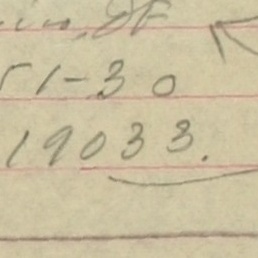 51-30
19033.